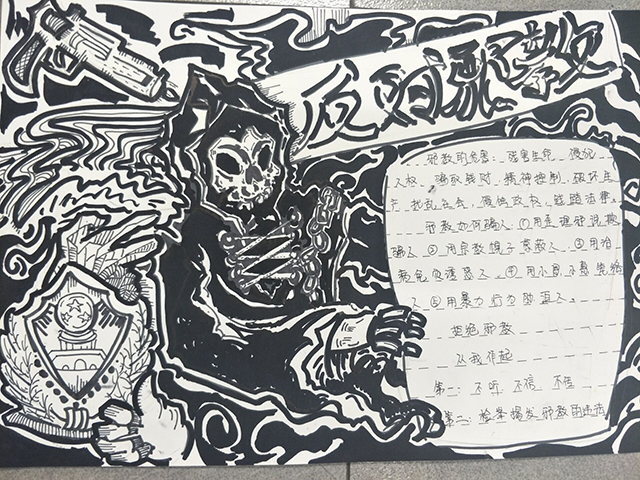 反对邪教
邪教的危害:残害生命、侵犯
人权、骗取钱财、精神控制、破坏生
产、扰乱社会、侵蚀政权、践踏法律。
邪教如何骗人①用歪理邪说欺
骗人②用宗教幌子蒙蔽人③用治
病免灾诱惑人④用小恩小惠笼络
人⑤用暴力行为胁迫人。
拒绝邪教
从我作起
第一:不听、不信、不传
第二:检举揭发邪教的违法